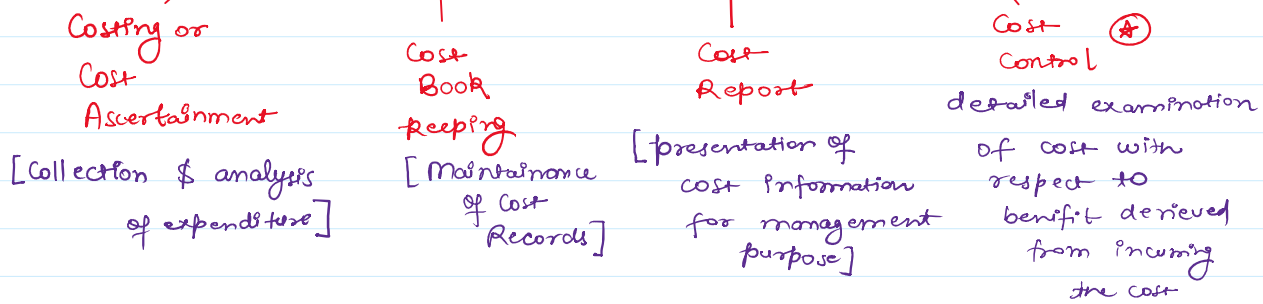 Costing or
Cost
Ascertainment
[Collection & analysis
of expenditure]
Cost
Book
keeping
[Maintainance
of Cost
Records]
Cost
Report
[presentation of
cost information
for management
purpose]
Cost
Control
detailed examination
of cost with
respect to
benifit derieved
from incurring
the cost